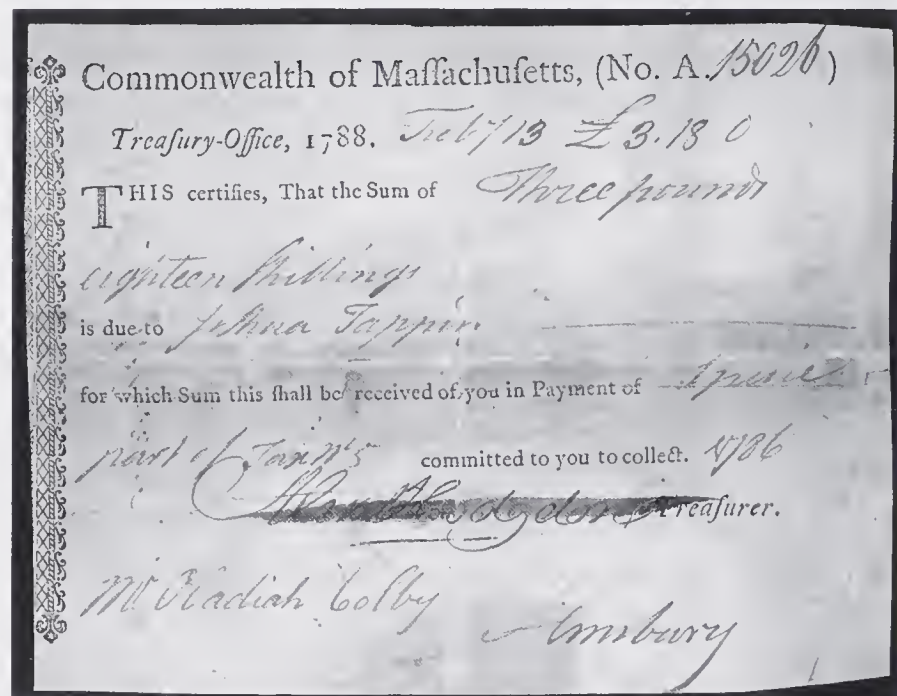 Commonwealth of Maſſachuſetts, (No. A. 15026)
Treaſury-Office, 1788. Feby 13 £3.18 0
THIS certifies, That the Sum of Three pounds
eighteen Shillings
is due to Joshua Tappin
for which Sum this ſhall be received of you in Payment of Specie
part of Tax No 5 committed to you to collect. 1786
Treaſurer.
Mr Colby
Amsbury